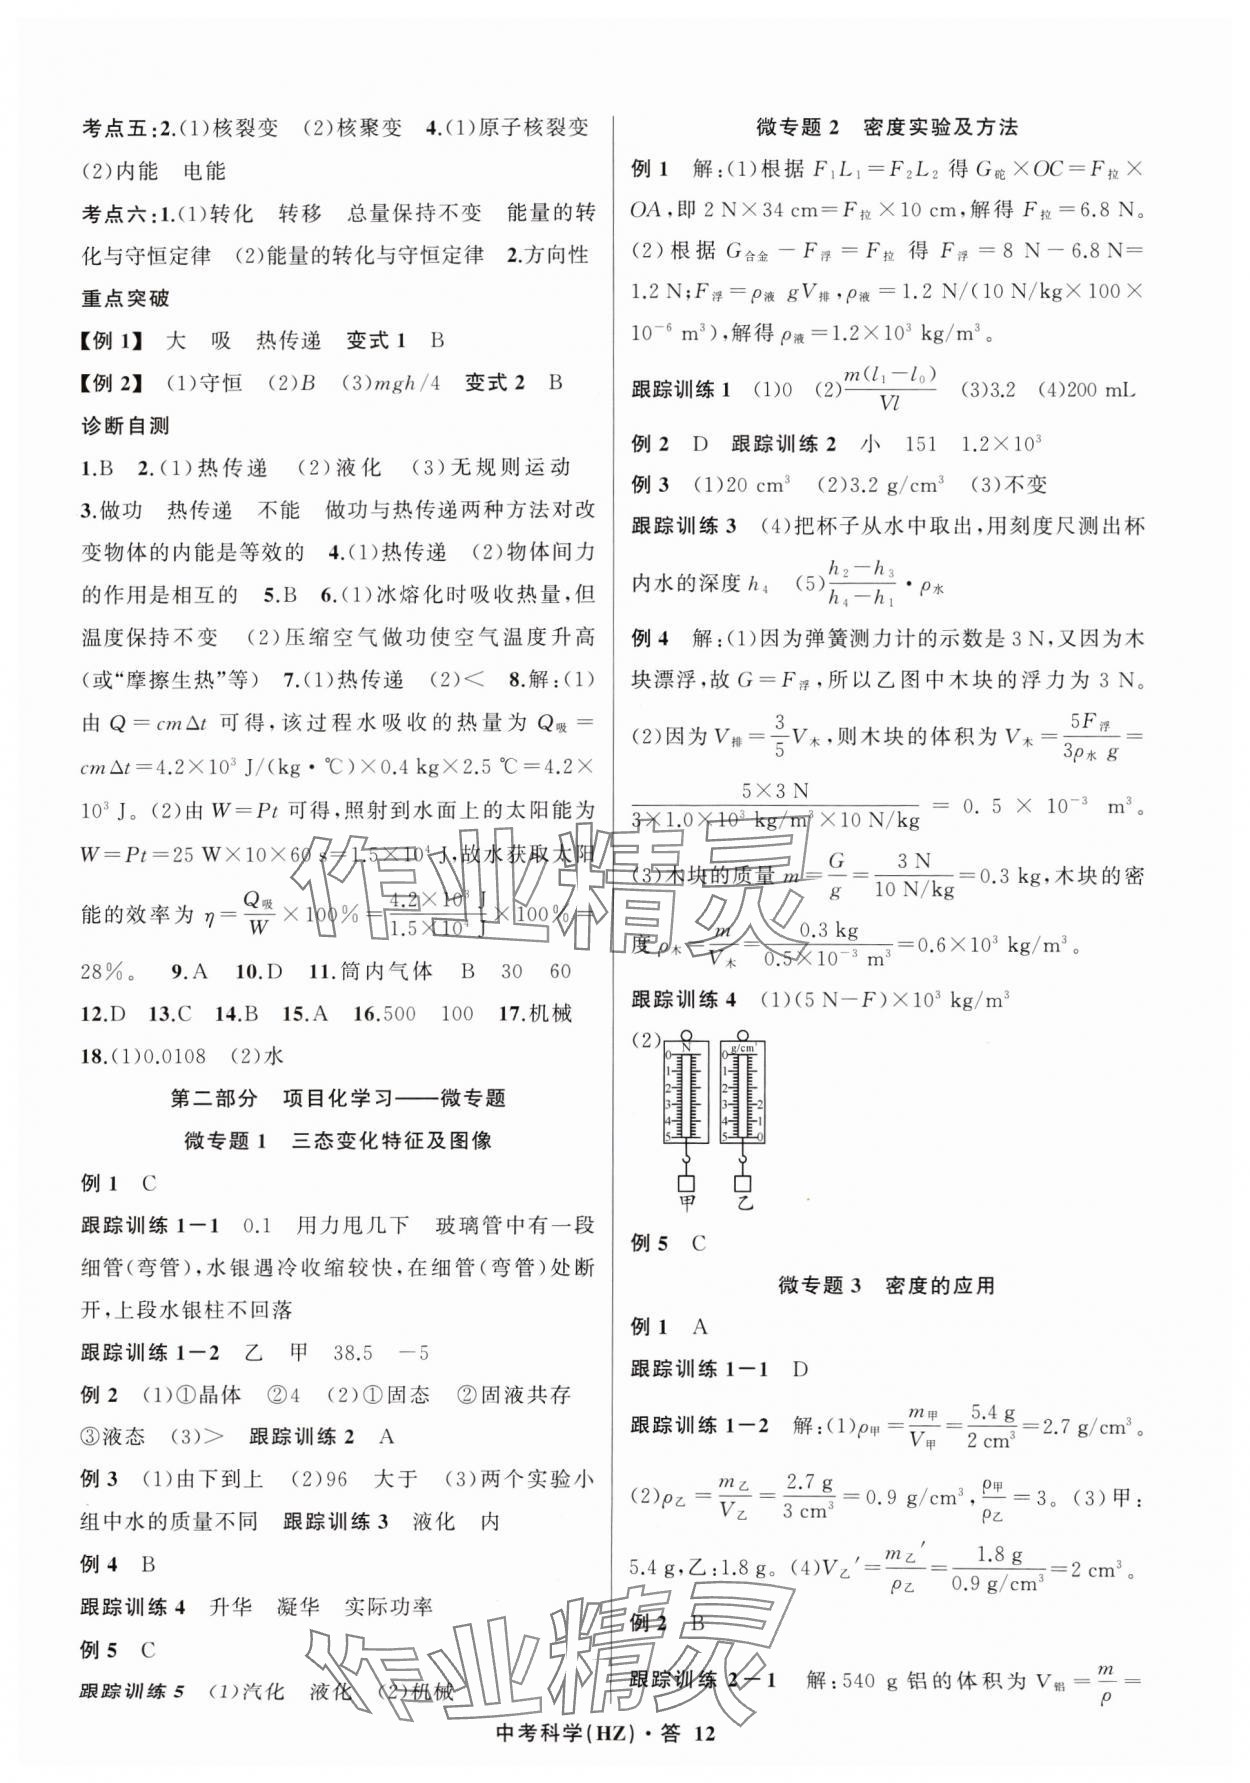 考点五:2.(1)核裂变 (2)核聚变 4.(1)原子核裂变
(2)内能 电能
考点六:1.(1)转化 转移 总量保持不变 能量的转
化与守恒定律 (2)能量的转化与守恒定律 2.方向性
重点突破
【例 1】 大 吸 热传递 变式 1 B
【例 2】 (1)守恒 (2)B (3)mgh/4 变式 2 B
诊断自测
1.B 2.(1)热传递 (2)液化 (3)无规则运动
3.做功 热传递 不能 做功与热传递两种方法对改
变物体的内能是等效的 4.(1)热传递 (2)物体间力
的作用是相互的 5.B 6.(1)冰熔化时吸收热量,但
温度保持不变 (2)压缩空气做功使空气温度升高
(或“摩擦生热”等) 7.(1)热传递 (2)< 8.解:(1)
由 Q=cmΔt 可得,该过程水吸收的热量为 Q吸=
cmΔt=4.2×10³ J/(kg·℃)×0.4 kg×2.5 ℃=4.2×
10³ J。(2)由 W=Pt 可得,照射到水面上的太阳能为
W=Pt=25 W×10×60 s=1.5×10⁴ J,故水获取太阳
能的效率为 η=Q吸/W×100%=4.2×10³ J/1.5×10⁴ J×100%=
28%。 9.A 10.D 11.筒内气体 B 30 60
12.D 13.C 14.B 15.A 16.500 100 17.机械
18.(1)0.0108 (2)水
第二部分 项目化学习——微专题
微专题 1 三态变化特征及图像
例 1 C
跟踪训练 1－1 0.1 用力甩几下 玻璃管中有一段
细管(弯管),水银遇冷收缩较快,在细管(弯管)处断
开,上段水银柱不回落
跟踪训练 1－2 乙 甲 38.5 －5
例 2 (1)①晶体 ②4 (2)①固态 ②固液共存
③液态 (3)> 跟踪训练 2 A
例 3 (1)由下到上 (2)96 大于 (3)两个实验小
组中水的质量不同 跟踪训练 3 液化 内
例 4 B
跟踪训练 4 升华 凝华 实际功率
例 5 C
跟踪训练 5 (1)汽化 液化 (2)机械
微专题 2 密度实验及方法
例 1 解:(1)根据 F₁L₁=F₂L₂ 得 G砣×OC=F拉×
OA,即 2 N×34 cm=F拉×10 cm,解得 F拉=6.8 N。
(2)根据 G合金－F浮=F拉 得 F浮=8 N－6.8 N=
1.2 N;F浮=ρ液 gV排,ρ液=1.2 N/(10 N/kg×100×
10⁻⁶ m³),解得 ρ液=1.2×10³ kg/m³。
跟踪训练 1 (1)0 (2)m(l₁－l₀)/Vl (3)3.2 (4)200 mL
例 2 D 跟踪训练 2 小 151 1.2×10³
例 3 (1)20 cm³ (2)3.2 g/cm³ (3)不变
跟踪训练 3 (4)把杯子从水中取出,用刻度尺测出杯
内水的深度 h₄ (5)h₂－h₃/h₄－h₁·ρ水
例 4 解:(1)因为弹簧测力计的示数是 3 N,又因为木
块漂浮,故 G=F浮,所以乙图中木块的浮力为 3 N。
(2)因为 V排=3/5V木,则木块的体积为 V木=5F浮/3ρ水 g=
5×3 N/3×1.0×10³ kg/m³×10 N/kg=0.5×10⁻³ m³。
(3)木块的质量 m=G/g=3 N/10 N/kg=0.3 kg,木块的密
度 ρ木=m/V木=0.3 kg/0.5×10⁻³ m³=0.6×10³ kg/m³。
跟踪训练 4 (1)(5 N－F)×10³ kg/m³
(2)
N g/cm³
0 0
1 1
2 2
3 3 2
4 4 1
5 5 0
甲 乙
例 5 C
微专题 3 密度的应用
例 1 A
跟踪训练 1－1 D
跟踪训练 1－2 解:(1)ρ甲=m甲/V甲=5.4 g/2 cm³=2.7 g/cm³。
(2)ρ乙=m乙/V乙=2.7 g/3 cm³=0.9 g/cm³,ρ甲/ρ乙=3。(3)甲:
5.4 g,乙:1.8 g。(4)V乙′=m乙′/ρ乙=1.8 g/0.9 g/cm³=2 cm³。
例 2 B
跟踪训练 2－1 解:540 g 铝的体积为 V铝=m/ρ=
中考科学(HZ)·答 12
作业精灵
作业精灵